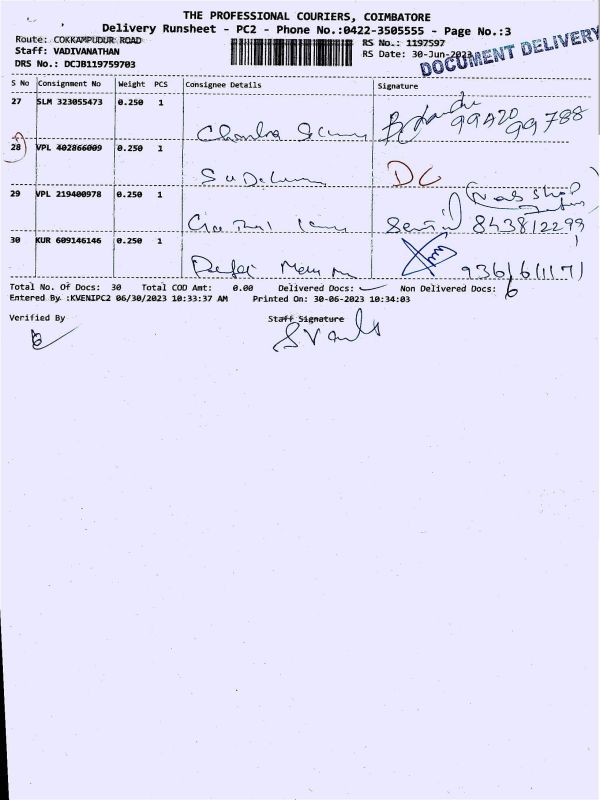 THE PROFESSIONAL COURIERS, COIMBATORE
Delivery Runsheet - PC2 - Phone No.:0422-3505555 - Page No.:3
Route: COKKAMPUDUR ROAD
RS No.: 1197597
Staff: VADIVANATHAN
RS Date: 30-Jun-2023
DOCUMENT DELIVERY
DRS No.: DCJB119759703
S No Consignment No Weight PCS Consignee Details Signature
27 SLM 323055473 0.250 1
99420
99788
28 VPL 402866009 0.250 1
DC
29 VPL 219400978 0.250 1
843812299
30 KUR 609146146 0.250 1
Total No. Of Docs: 30 Total COD Amt: 0.00 Delivered Docs: Non Delivered Docs:
Entered By :KVENIPC2 06/30/2023 10:33:37 AM Printed On: 30-06-2023 10:34:03
Verified By Staff Signature